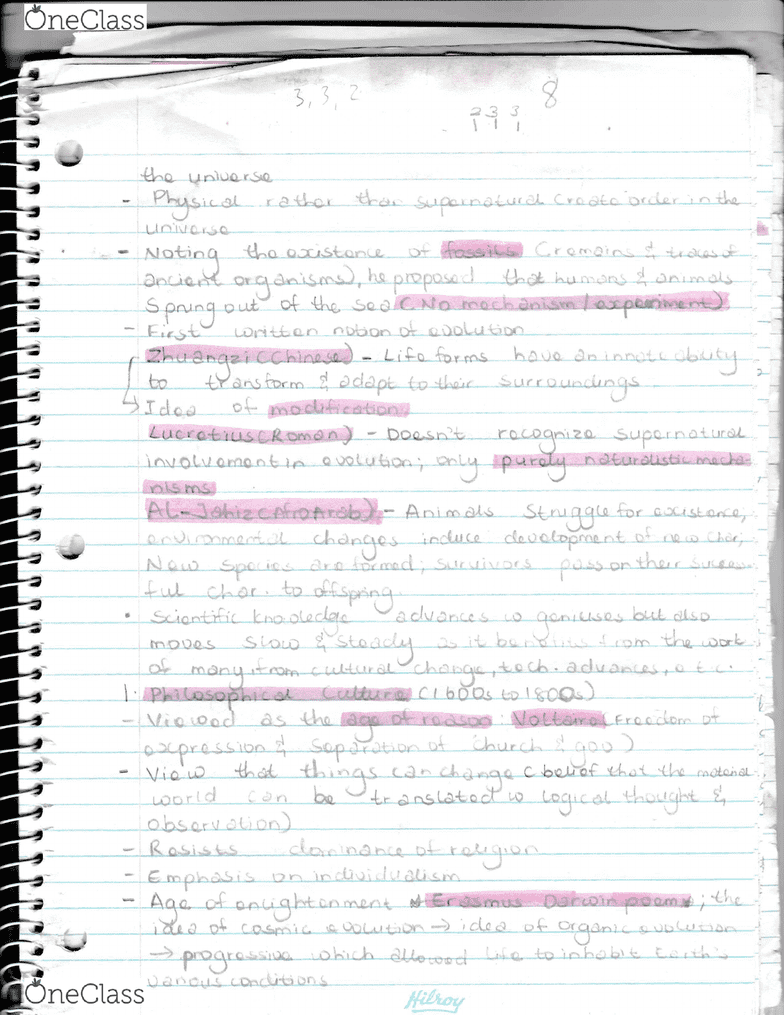 OneClass
3, 3, 2
8
2 3 3
1 1 1
the universe
- Physical rather than supernatural create order in the
universe
- Noting the existence of fossils (remains & traces of
ancient organisms), he proposed that humans & animals
sprung out of the sea (No mechanism/experiment)
- First written notion of evolution
Zhuangzi (Chinese) - Life forms have an innate ability
to transform & adapt to their surroundings
→ Idea of modification
Lucretius (Roman) - Doesn't recognize supernatural
involvement in evolution; only purely naturalistic mecha
nisms
AL-Jahiz (AfroArab) - Animals struggle for existence,
environmental changes induce development of new char;
New species are formed; survivors pass on their success
ful char. to offspring.
• Scientific knowledge advances w geniuses but also
moves slow & steady as it benefits from the work
of many, from cultural change, tech. advances, etc.
1. Philosophical Culture (1600s to 1800s)
- Viewed as the age of reason: Voltaire (Freedom of
expression & separation of church & gov)
- View that things can change (belief that the material
world can be translated w logical thought &
observation)
- Resists dominance of religion
- Emphasis on individualism
- Age of enlightenment * Erasmus Darwin poem*; the
idea of cosmic evolution → idea of organic evolution
→ progressive which allowed life to inhabit Earth's
various conditions
OneClass
Hilroy